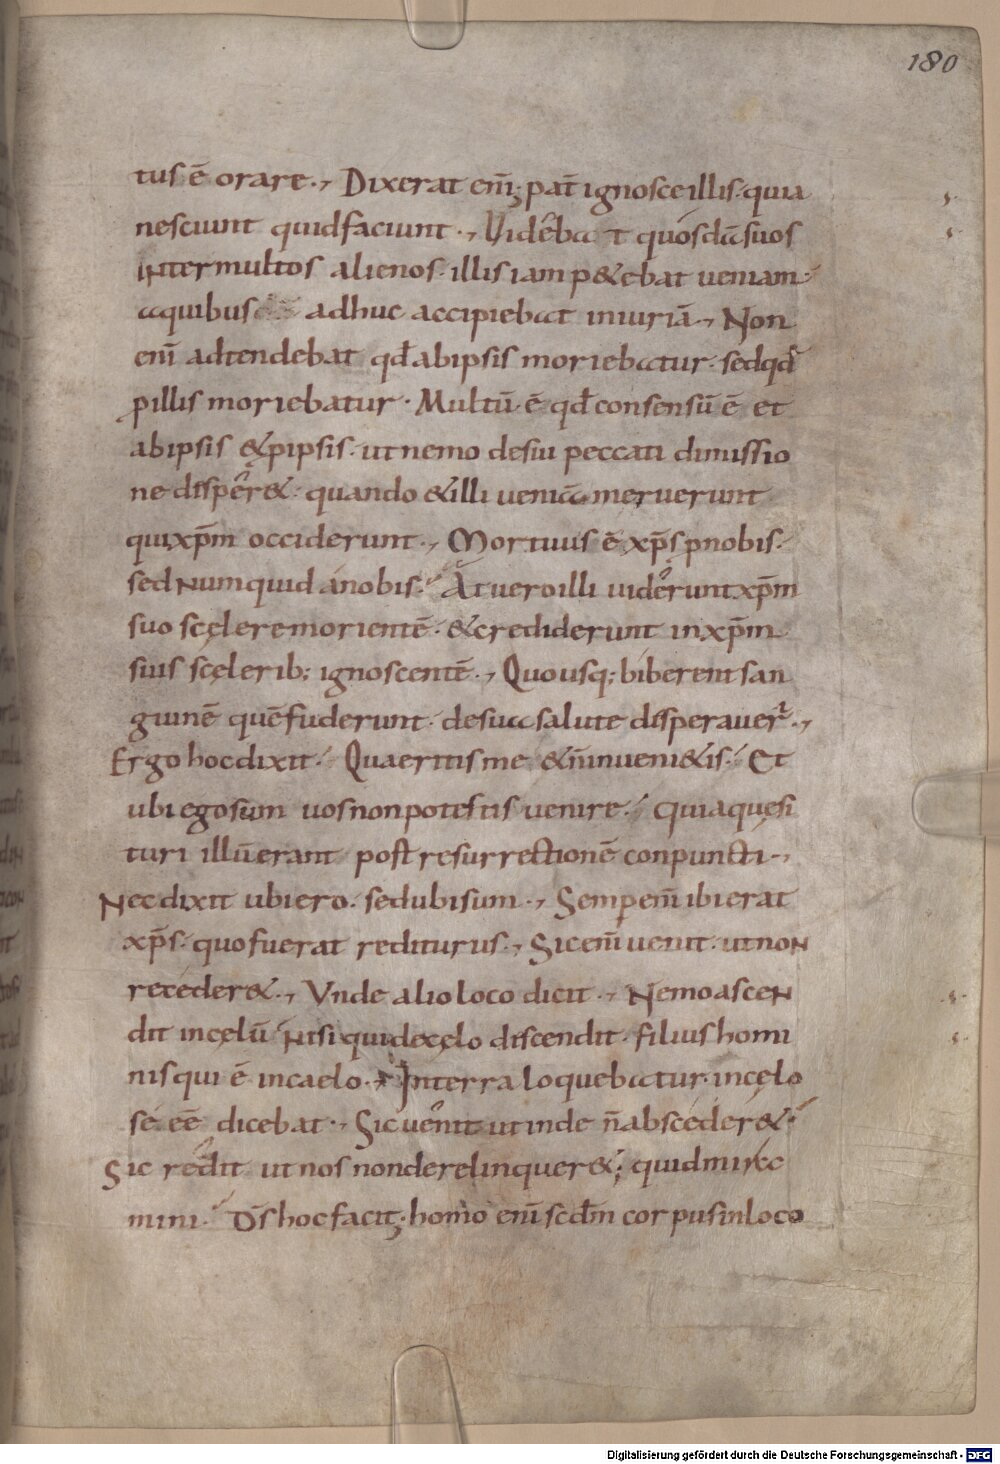 180
tus ē orare., Dixerat eni̅; pat̅ ignosce illis. quia
nesciunt quid faciunt., Videbat quosdā suos
inter multos alienos. illis iam p&ebat ueniam.
a quibus adhuc accipiebat iniuriā., Non
eni̅ adtendebat qđ ab ipsis moriebatur. sed qđ
ꝑ illis moriebatur. Multū ē qđ consensū ē et
ab ipsis &ꝑ ipsis. ut nemo de sui peccati dimissio
ne disper&. quando & illi ueniā meruerunt
qui xp̄m occiderunt., Mortuus ē xp̄s ꝑ nobis.
sed numquid a nobis. At uero illi uiderunt xp̄m
suo scęlere morientē. & crediderunt in xp̄m
suis scęlerib; ignoscentē., Quousq; biberent san
guinē quē fuderunt. de sua salute disperauer̅.,
Ergo hoc dixit. Quaeritis me & n̄ inueni&is. Et
ubi ego sum uos non potestis uenire. Quia quęsi
turi illū erant post resurrectionē conpuncti.,
Nec dixit ubi ero. sed ubi sum., Semper eni̅ ibi erat
xp̄s. quo fuerat rediturus., Sic eni̅ uenit. ut non
receder&., Vnde alio loco dicit., Nemo ascen
dit in cęlū nisi qui de cęlo discendit. filius homi
nis qui ē in caelo., In terra loquebatur. in cęlo
se eē dicebat., Sic uenit ut inde n̄ absceder&.
Sic redit ut nos non derelinquer&; quid mira
mini. D̄s hoc facit; homo eni̅ scdm̄ corpus in loco
Digitalisierung gefördert durch die Deutsche Forschungsgemeinschaft - DFG